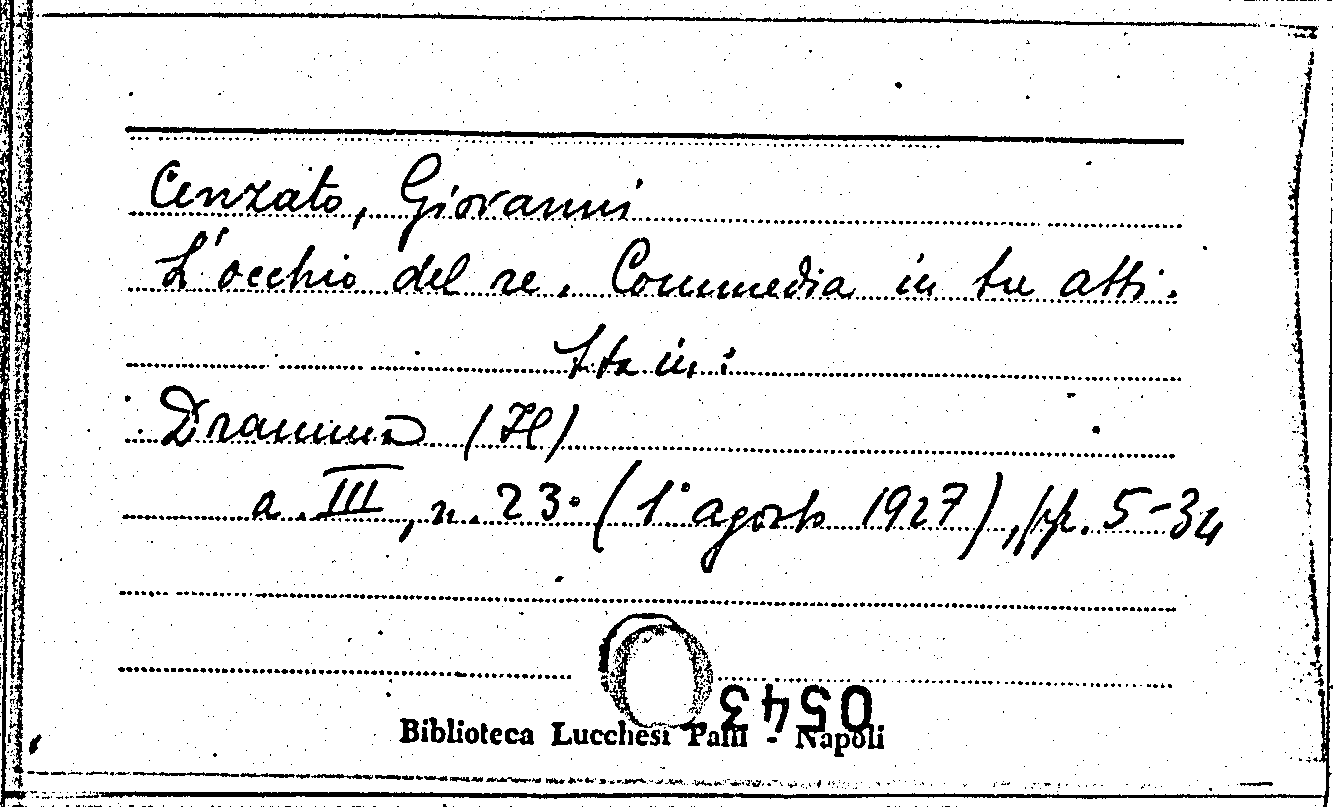 Cenzato, Giovanni
L'occhio del re. Commedia in tre atti.
Sta in:
Dramma (Il)
a. III, n. 23. (1° agosto 1927), pp. 5-34
0543
Biblioteca Lucchesi Palli - Napoli